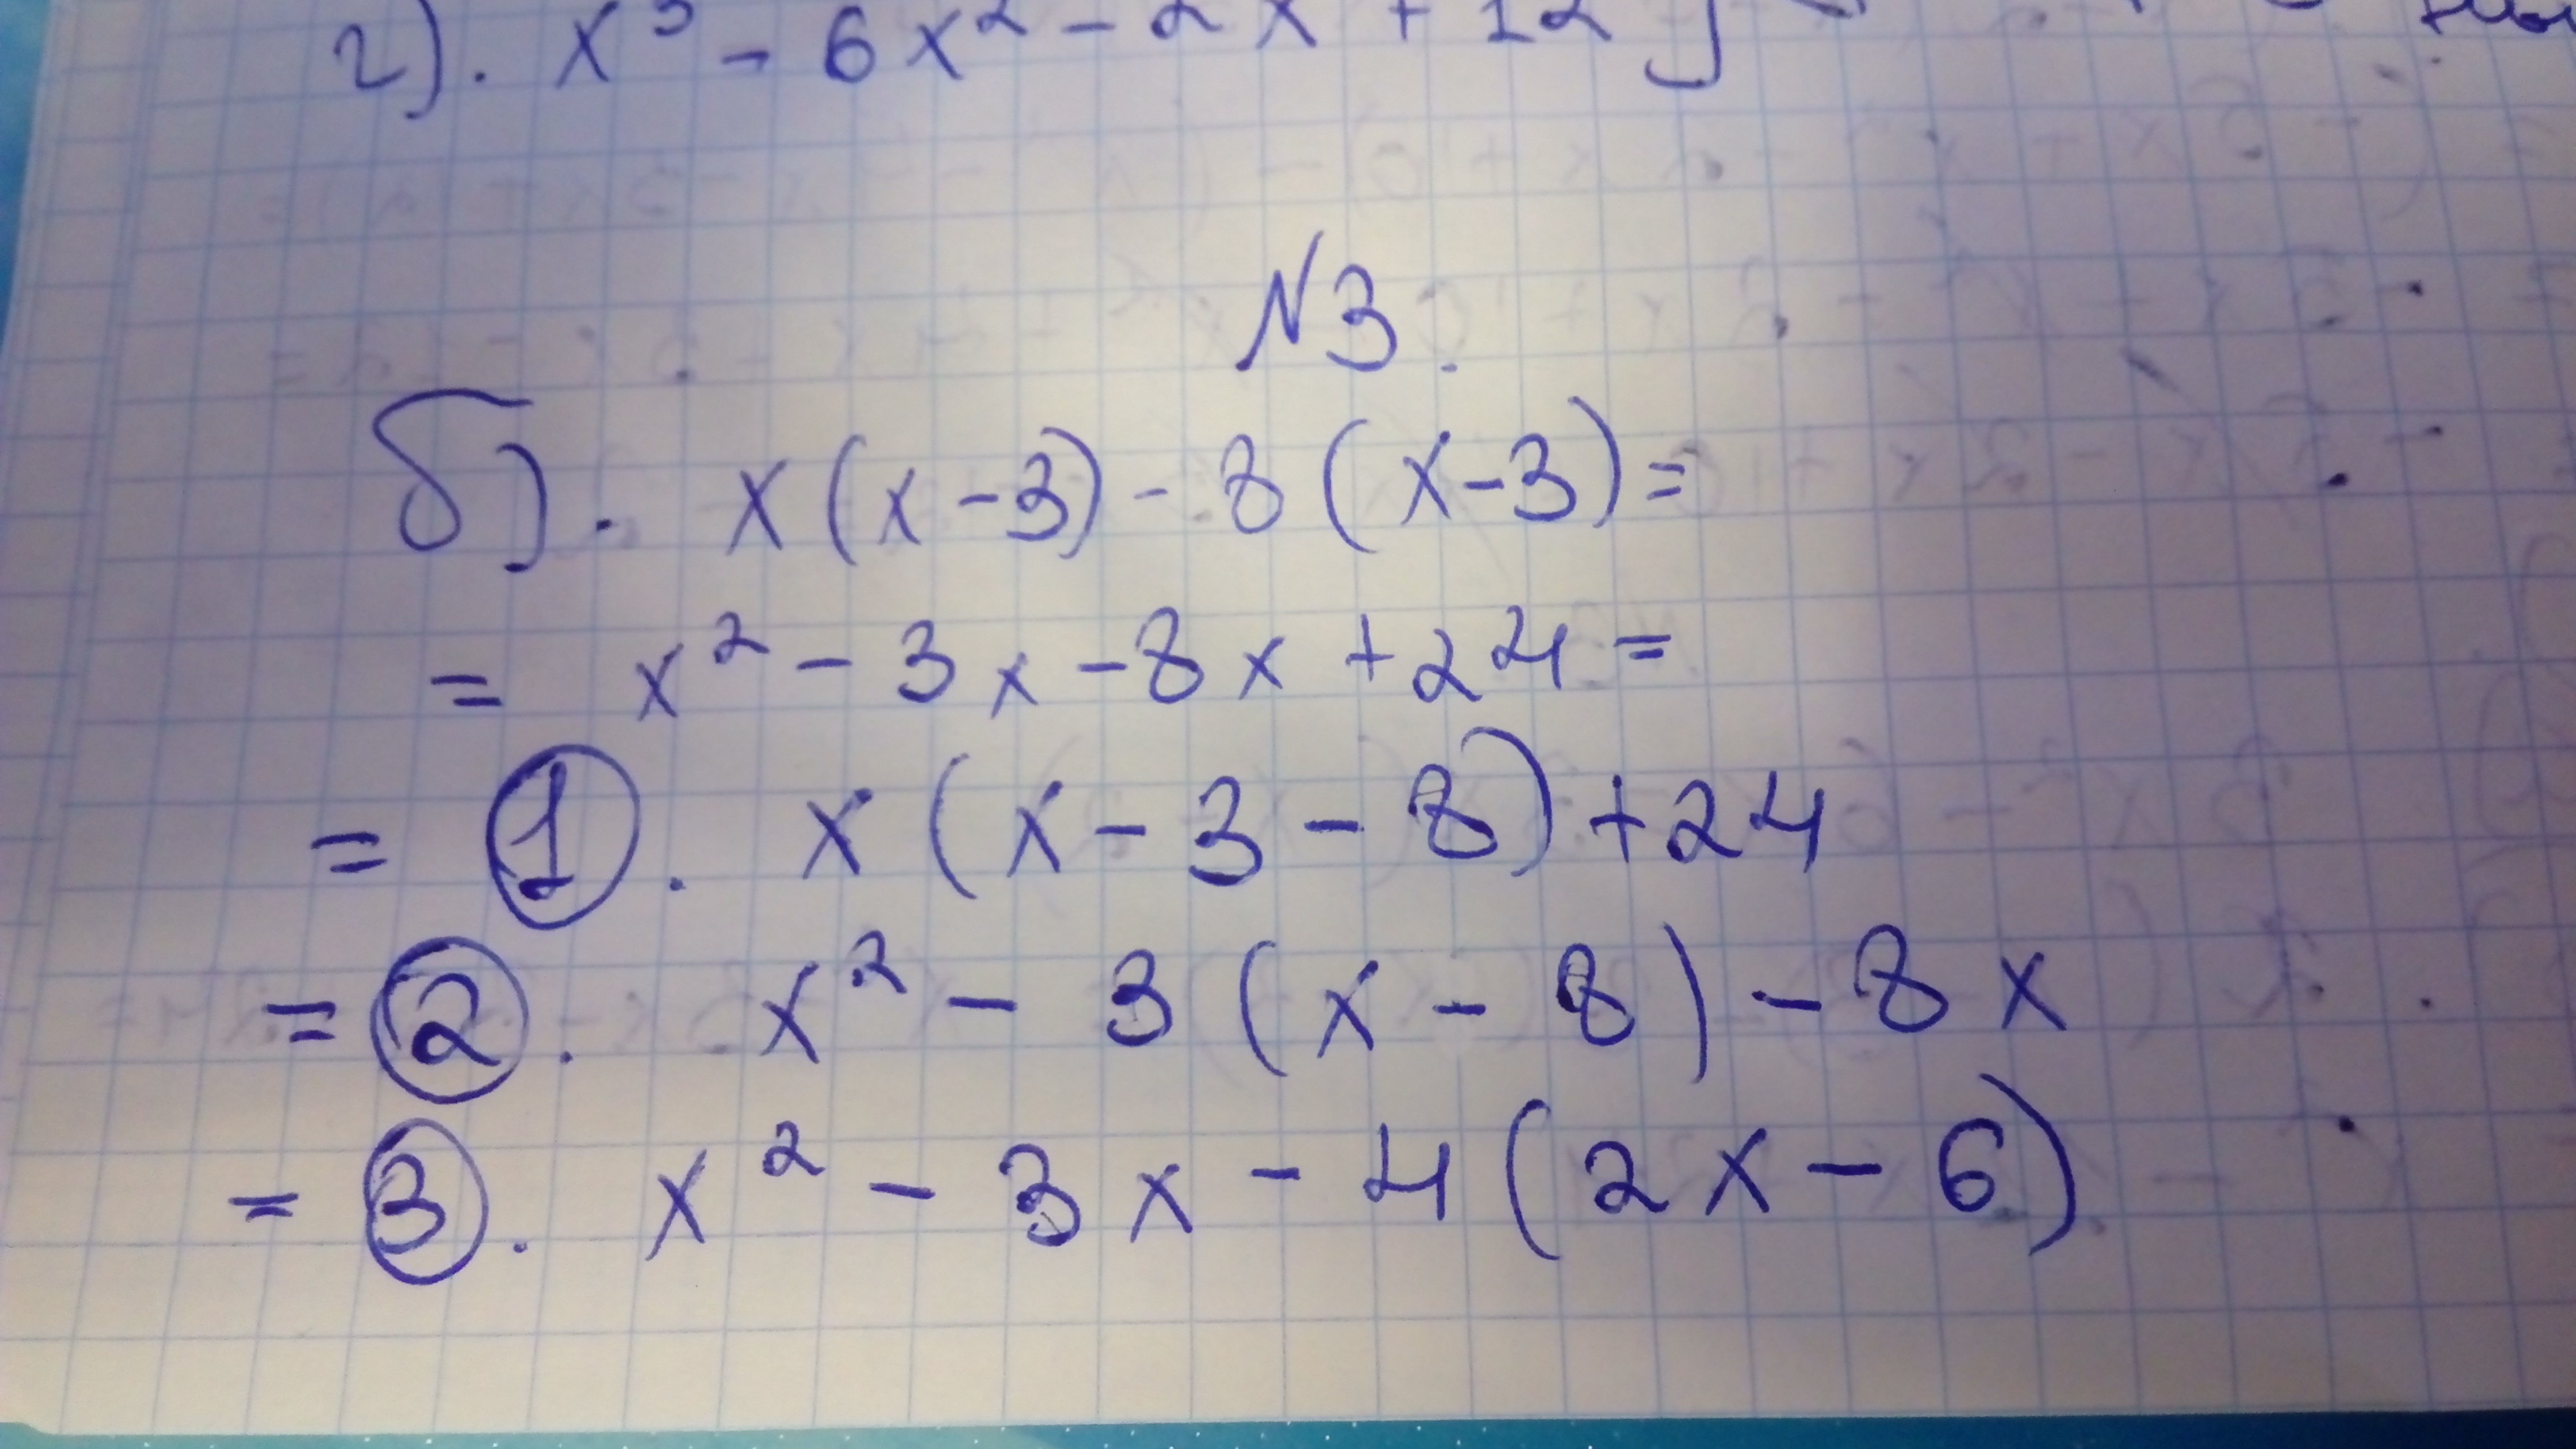 г). x³ - 6x² - 2x + 12
N3.
б). x(x-3) - 8(x-3)=
= x² - 3x - 8x + 24 =
= ①. x(x - 3 - 8) + 24
= ②. x² - 3(x - 8) - 8x
= ③. x² - 3x - 4(2x - 6)